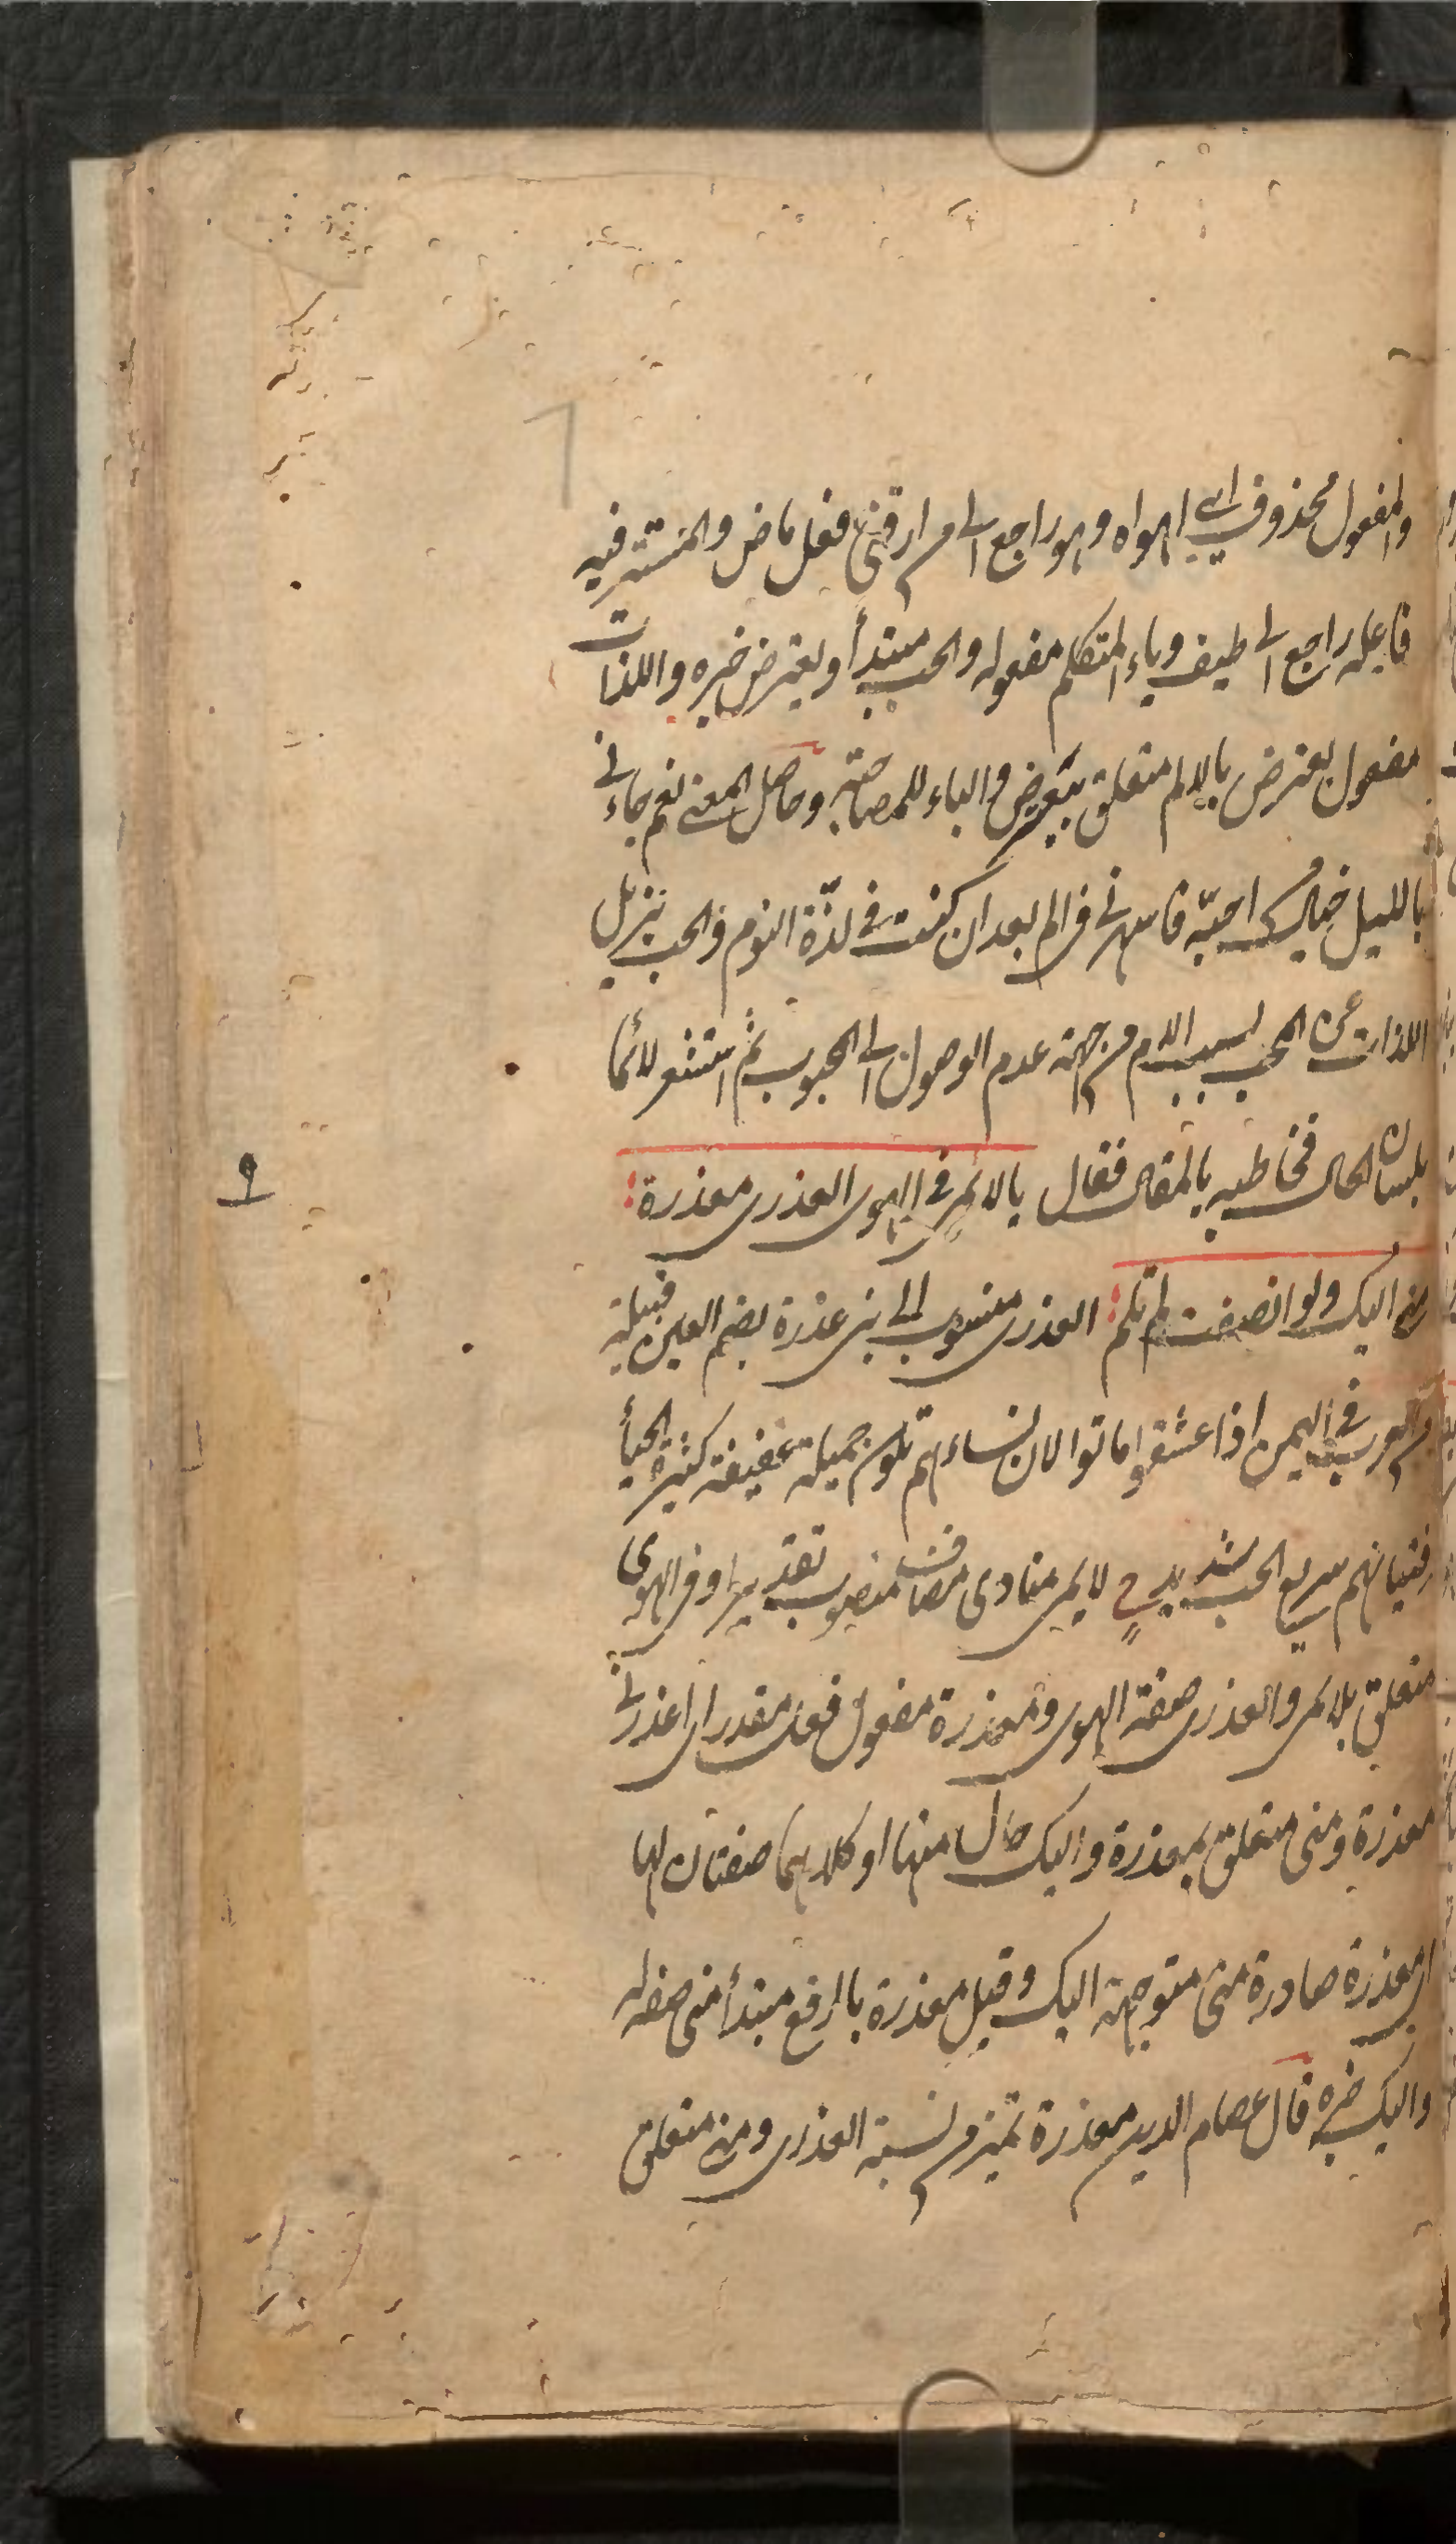 والمفعول محذوف اى اهواه وهو راجع الى من ارقنى فعل ماض والمستتر فيه
فاعله راجع الى طيف وياء المتكلم مفعوله والحب مبتدأ ويعترض خبره واللذات
مفعول يعترض بالالم متعلق بيعترض والباء للمصاحبة وحاصل المعنى نعم جاءنى
بالليل خيال من احبه فاسهرنى فى الم بعد ان كنت فى لذة النوم والحب يزيل
اللذات عن المحب بسبب الالم من جهة عدم الوصول الى المحبوب ثم استشعر لائما
بلسان الحال فخاطبه بالمقال فقال يا لائمى فى الهوى العذرى معذرة
منى اليك ولو انصفت لم تلم العذرى منسوب الى بنى عذرة بضم العين قبيلة
من العرب فى اليمن اذا عشقوا ماتوا لان نساءهم تكون جميلة عفيفة كثيرة الحيأ
وفتيانهم سريع الحب شديد لايمى منادى مضاف منصوب تقديرا وفى الهوى
متعلق بلايمى والعذرى صفة الهوى ومعذرة مفعول فعل مقدر اى اعذرنى
معذرة ومنى متعلق بمعذرة واليك حال منها او كلاهما صفتان لها
اى معذرة صادرة منى متوجهة اليك وقيل معذرة بالرفع مبتدأ منى صفة له
واليك خبره قال عصام الدين معذرة تميز من نسبة العذرى ومنى متعلق
٩